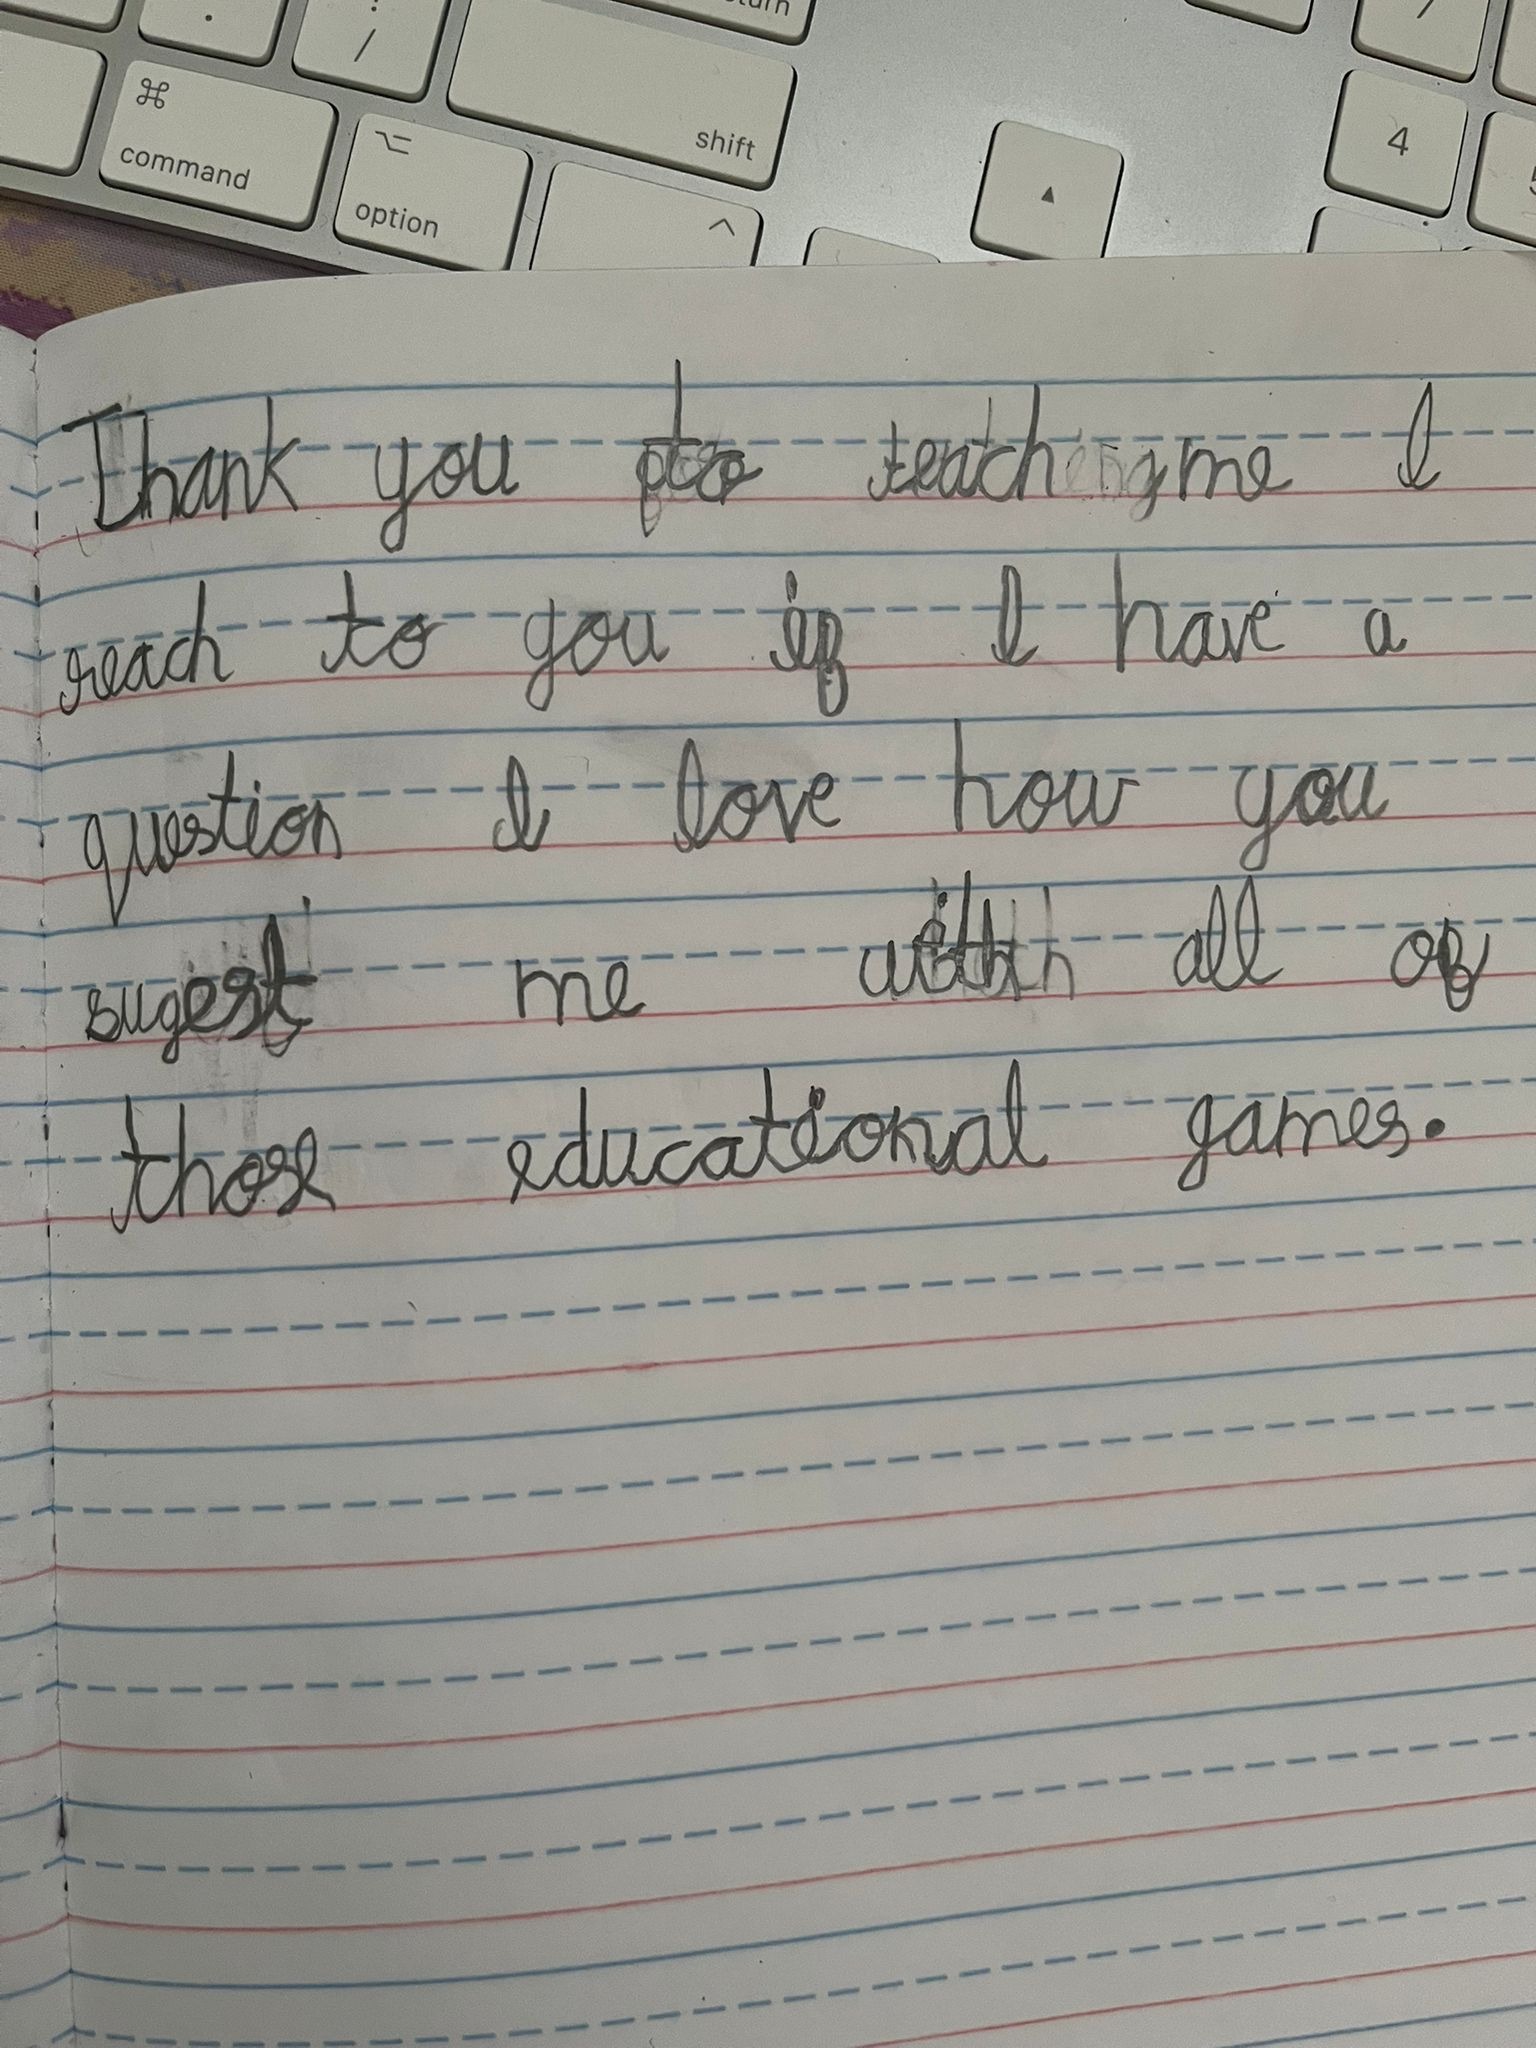 turn
⌘
command
/
shift
option
^
▲
4
Thank you to teach me I
reach to you if I have a
question I love how you
sugest me with all of
those educational games.